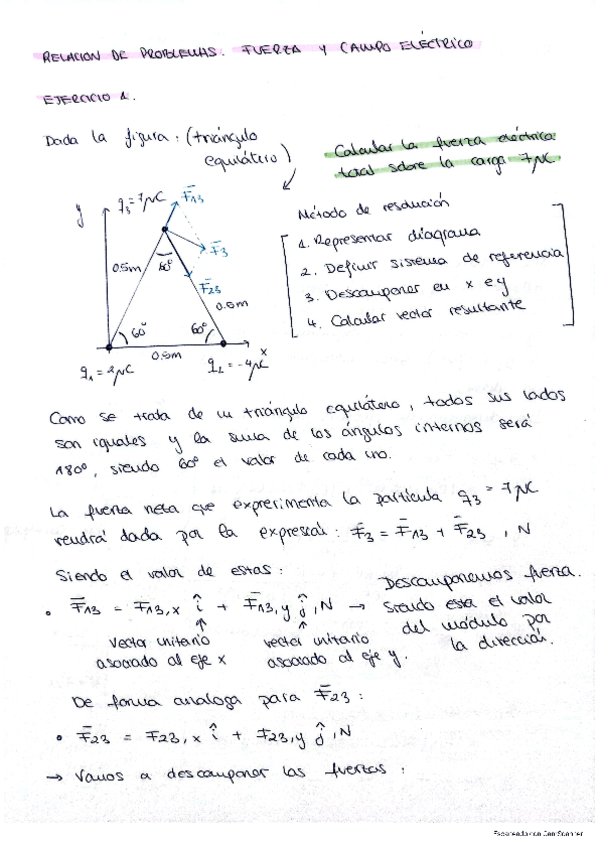 RELACION DE PROBLEMAS. FUERZA Y CAMPO ELÉCTRICO
EJERCICIO 1.
Dada la figura: (triángulo
equilátero)
Calcular la fuerza eléctrica
total sobre la carga 7μC.
y
q₃=7μC
F̄₁₃
F̄₃
F̄₂₃
0.5m
60°
0.5m
60°
60°
0.5m
x
q₁=2μC
q₂=-4μC
Método de resolución
1. Representar diagrama
2. Definir sistema de referencia
3. Descomponer en x e y
4. Calcular vector resultante
Como se trata de un triángulo equilátero, todos sus lados
son iguales y la suma de los ángulos internos será
180°, siendo 60° el valor de cada uno.
La fuerza neta que experimenta la partícula q₃=7μC
vendrá dada por la expresión: F̄₃ = F̄₁₃ + F̄₂₃, N
Siendo el valor de estas:
• F̄₁₃ = F₁₃,x î + F₁₃,y ĵ, N →
Descomponemos fuerza.
Siendo esta el valor
del módulo por
la dirección.
vector unitario
asociado al eje x
vector unitario
asociado al eje y.
De forma analoga para F̄₂₃:
• F̄₂₃ = F₂₃,x î + F₂₃,y ĵ, N
→ Vamos a descomponer las fuerzas:
Escaneado con CamScanner